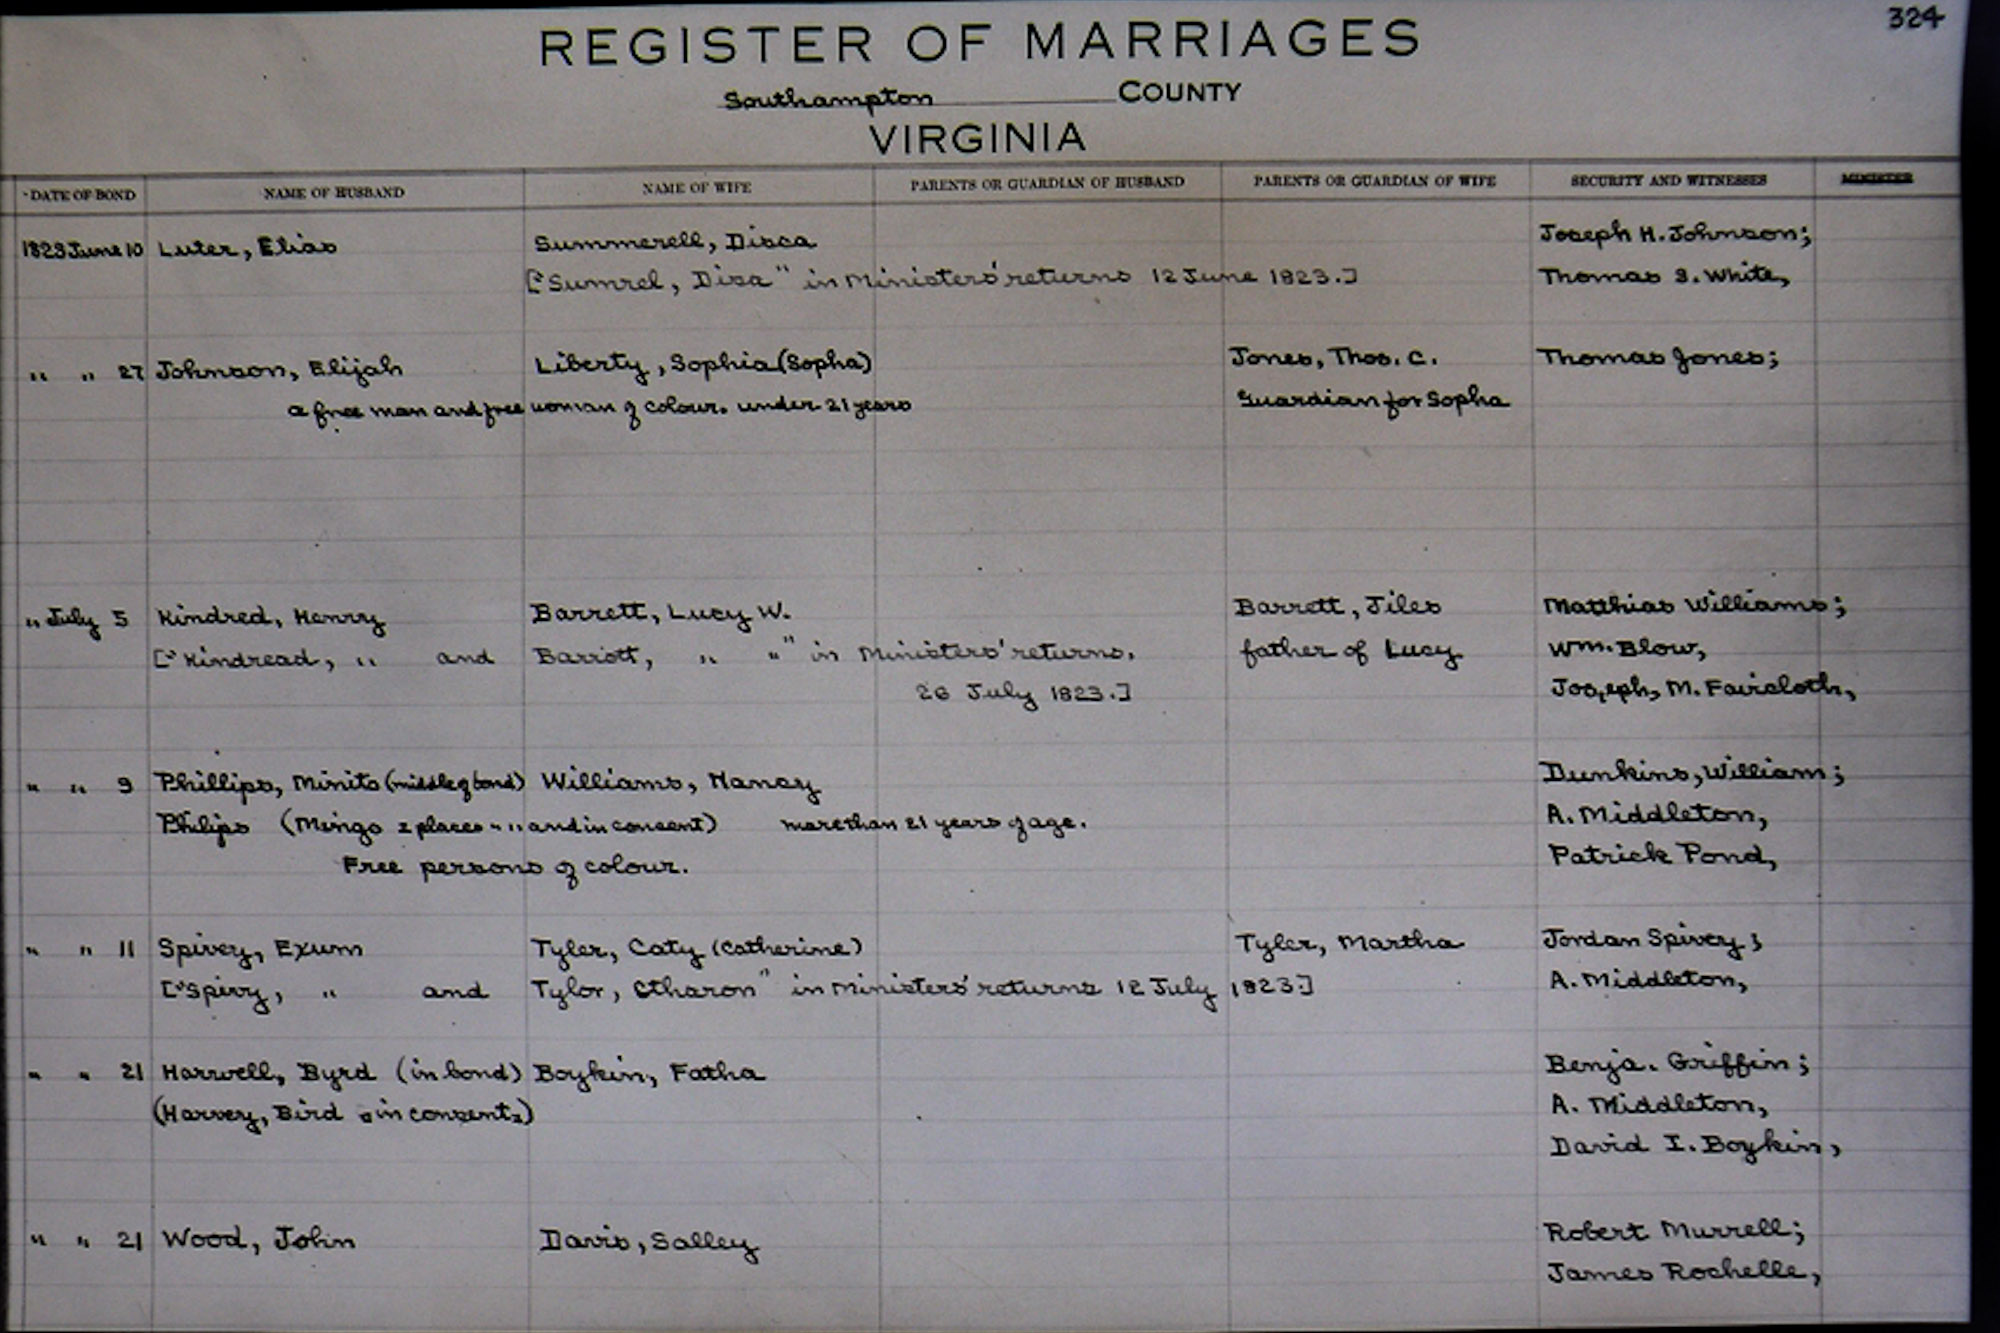 324
REGISTER OF MARRIAGES
Southampton COUNTY
VIRGINIA
DATE OF BOND NAME OF HUSBAND NAME OF WIFE PARENTS OR GUARDIAN OF HUSBAND PARENTS OR GUARDIAN OF WIFE SECURITY AND WITNESSES MINISTER
1823 June 10 Luter, Elias Summerell, Disca Joseph H. Johnson;
["Sumrel, Disa" in Ministers' returns 12 June 1823.] Thomas S. White,
" " 27 Johnson, Elijah Liberty, Sophia (Sopha) Jones, Thos. C. Thomas Jones;
a free man and free woman of colour. under 21 years Guardian for Sopha
" July 5 Kindred, Henry Barrett, Lucy W. Barrett, Jiles Matthias Williams;
["Kindread, " and Barriott, " "" in Ministers' returns. father of Lucy Wm. Blow,
26 July 1823.] Joseph, M. Faircloth,
" " 9 Phillips, Minito (middle of bond) Williams, Nancy Dunkins, William;
Philips (Mingo 2 places " " and in consent) more than 21 years of age. A. Middleton,
Free persons of colour. Patrick Pond,
" " 11 Spivey, Exum Tyler, Caty (Catherine) Tyler, Martha Jordan Spivey;
["Spivy, " and Tylor, Ctharon" in Ministers' returns 12 July 1823] A. Middleton,
" " 21 Harwell, Byrd (in bond) Boykin, Fatha Benja. Griffin;
(Harvey, Bird in consent) A. Middleton,
David I. Boykin,
" " 21 Wood, John Davis, Salley Robert Murrell;
James Rochelle,